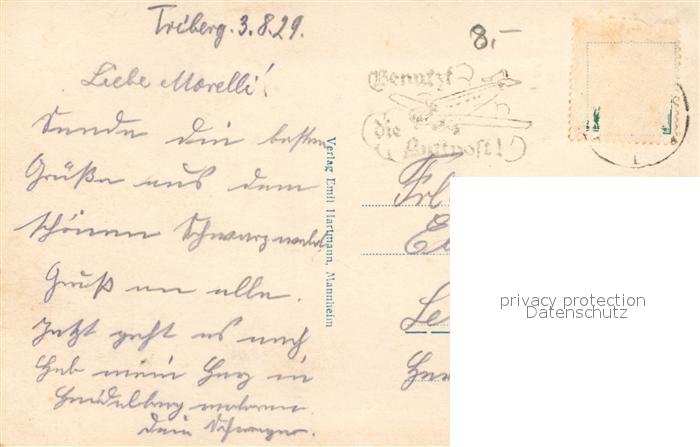 Triberg. 3.8.29.
8.-
Liebe Morelli!
Sende dir besten
Grüße aus dem
schönen Schwarzwald
Gruß an alle.
Jetzt geht es nach
Hab mein Herz in
Heidelberg verloren.
Dein Schwager.
Benutzt
die
Luftpost!
Verlag Emil Hartmann, Mannheim
Frl
privacy protection
Datenschutz